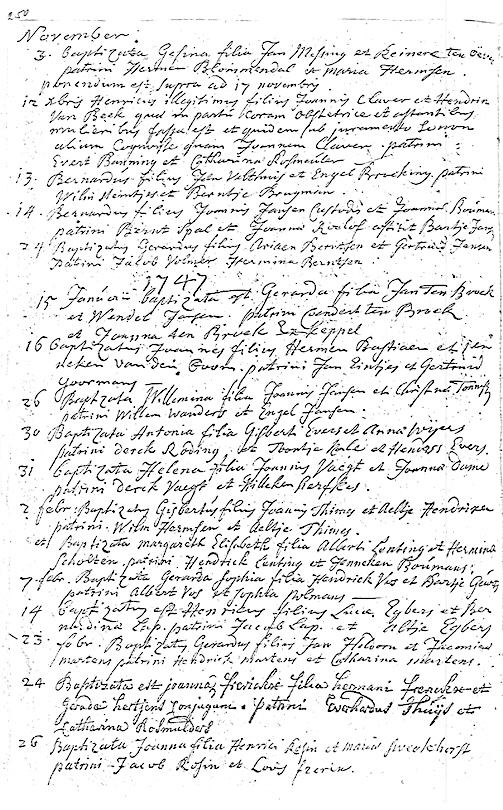 250
November.
3. Baptizata Gesina filia Jan Messing et Reinera ten
patrini Herman Blommendal et maria Hermsen.
ponendum est supra ad 17 novembris
12 xbris Henricus illegitimus filius Joannis Claver et Hendrin
Van Beek quod in partu Coram obstetrice et astantibus
mulieribus fassa est et quidem sub juramento se non
alium Cognosse quam Joannem Claver. patrini
Evert Banning et Catharina Rosmeuler
13. Bernardus filius Jan Velthuis et Engel patrini
Wilm et Berntje Brugman
14. Bernardus filius Joannis Jansen Custodis et Bouman
patrini Berut Spal et Joanna Roelof astitit Bartje Jan
24 Baptizatus Gerardus filius Ariaen Berntsen et Gertruid Jansen
patrini Jacob Volmer Hermina Berntsen
1747
15 Januarii baptizata est Gerarda filia Jan ten Broek
et Wendel Jansen. patrini ten Broek
et Joanna ten Broek Keppel
16 baptizatus Joannes filius Hermen Bastiaen et Jen
neken van den Ooorn. patrini Jan et Gertruid
Goormans
26 Baptizata Willemina filia Joannis Jansen et Christina
patrini Willem Wanders et Engel Jansen.
30 Baptizata Antonia filia Gisbert Evers et Anna Wijers
patrini derck Roding, et et Hendrs Evers.
31 baptizata Helena filia Joannis Vaegt et Joanna Dame
patrini derck Vaegt et Hilleken
2 febr. Baptizatus Gisbertus filius Joannis Thimes et Aeltje Hendrixen
patrini. Wilm Hermsen et Aeltje Thimes.
et Baptizata margareth Elisabeth filia Alberti Lenting et Hermina
Scholten patrini Hendrick Lenting et Jenneken Boumans.
7 febr. Baptizata Gerarda Sophia filia Hendrick Vos et Bartje
patrini Albert Vos et Sophia Polmans
14 baptizatus est Henricus filius Luca Egbers et Ber
nardina Lup. patrini Jacob Lup. et Altje Egbers
23 febr. Baptizatus Gerardus filius Jan Holboom et
martens patrini Hendrick martens et Catharina martens.
24 Baptizata est joanna filia hermani frericks et
Gerada hertjens conjugum. patrini Everhardus Thuijs et
Catharina Rosmulders
26 Baptizata Joanna filia Henrici Rosin et maria
patrini Jacob Rosin et